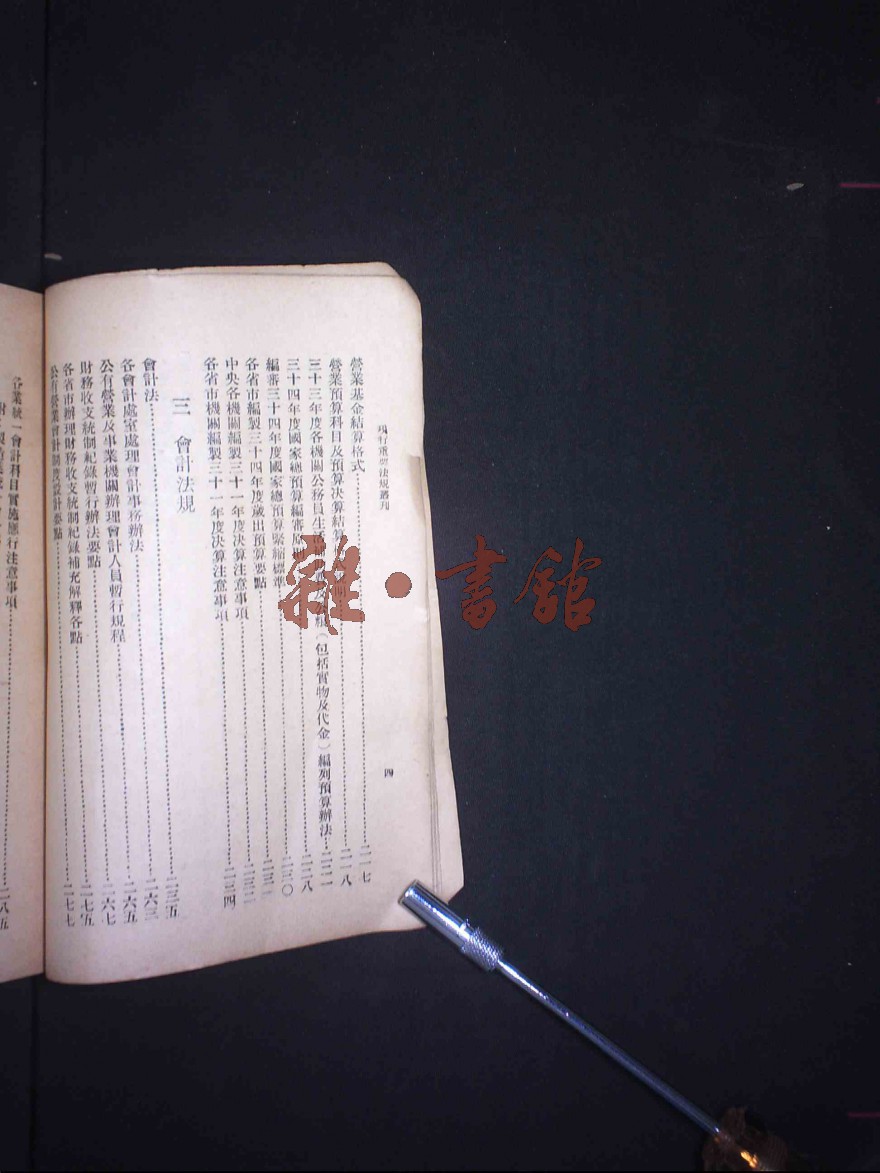 現行重要法規叢刊
四
營業基金結算格式⋯⋯二一七
營業預算科目及預算決算結算⋯⋯二一八
三十三年度各機關公務員生（包括實物及代金）編列預算辦法⋯⋯二二一
三十四年度國家總預算編審原⋯⋯二二八
編審三十四年度國家總預算緊縮標準⋯⋯二三〇
各省市編製三十四年度歲出預算要點⋯⋯二三一
中央各機關編製三十一年度決算注意事項⋯⋯二三二
各省市機關編製三十一年度決算注意事項⋯⋯二三四
三 會計法規
會計法⋯⋯二三五
各會計處室處理會計事務辦法⋯⋯二六三
公有營業及事業機關辦理會計人員暫行規程⋯⋯二六五
財務收支統制紀錄暫行辦法要點⋯⋯二六七
各省市辦理財務收支統制紀錄補充解釋各點⋯⋯二七五
公有營業會計制度設計要點⋯⋯二七七
各業統一會計科目實施應行注意事項⋯⋯二八五
雜·書館